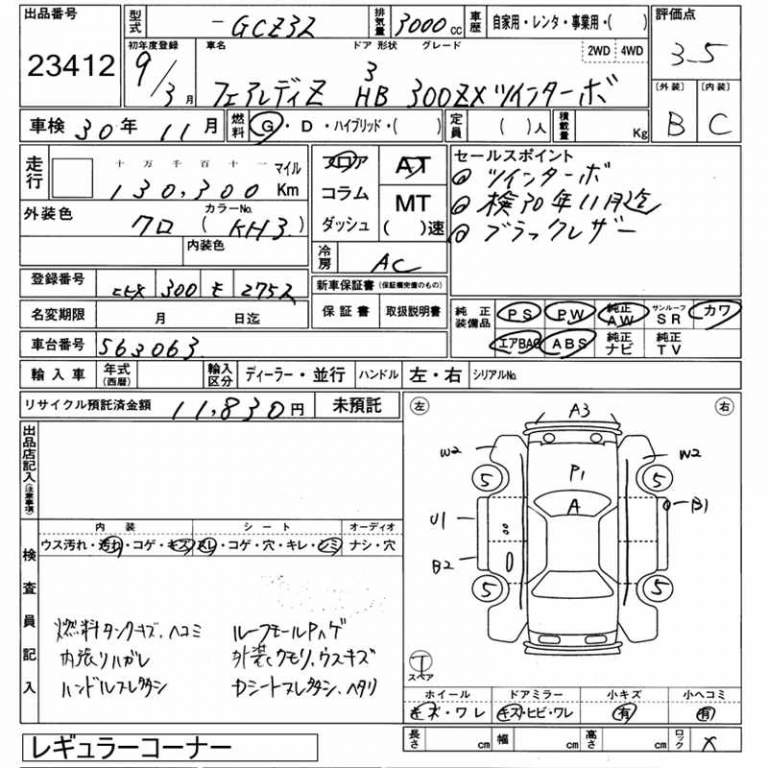 出品番号 23412
型式 - GCZ32 排気量 3000 cc 車歴 自家用・レンタ・事業用・( )
評価点 3.5
初年度登録 9/3月 車名 フェアレディZ ドア 3 形状 HB グレード 300ZXツインターボ 2WD 4WD
〔外装〕 B 〔内装〕 C
車検 30年 11月 燃料 G・D・ハイブリッド・( ) 定員 ( )人 積載量 Kg
走行 十万千百十一 130,300 マイル Km
フロア コラム ダッシュ AT MT ( )速
セールスポイント
◎ ツインターボ
◎ 検30年11月迄
◎ ブラックレザー
外装色 クロ カラーNo. (KH3)
内装色
冷房 AC
登録番号 300 2752
新車保証書 (保証継続書のもの)
保証書 取扱説明書
名変期限 月 日迄
純正装備品 PS PW 純正AW サンルーフSR カワ
エアBAG ABS 純正ナビ 純正TV
車台番号 563063
輸入車 年式(西暦) 輸入区分 ディーラー・並行 ハンドル 左・右 シリアルNo.
リサイクル預託済金額 11,830円 未預託
出品店記入(注意事項)
左 右
A3
W2 W2
P1
5 5
A
U1 B1
B2
5 5
T
スペア
検査員記入
内装 シート オーディオ
ウス汚れ・汚れ・コゲ・キズ スレ・コゲ・穴・キレ・シミ ナシ・穴
燃料タンクキズ、ヘコミ ルーフモールPハゲ
内張リハガレ 外装クモリ、ウスキズ
ハンドルスレ ロシートスレ
ホイール ドアミラー 小キズ 小ヘコミ
キズ・ワレ キズ・ヒビ・ワレ 有 有
長さ cm 幅 cm 高さ cm ロック ×
レギュラーコーナー